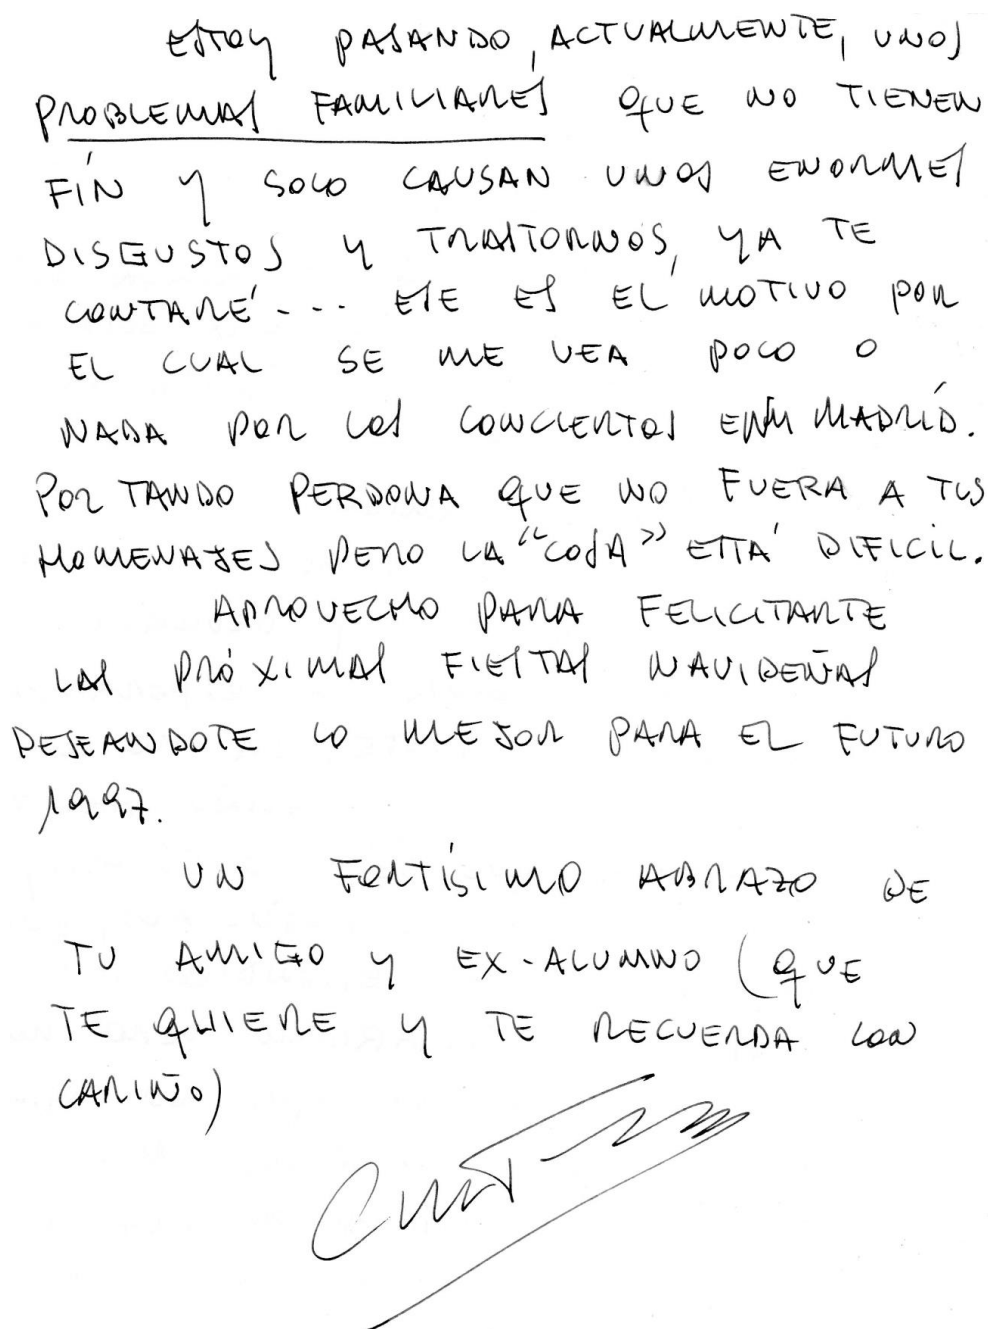 ESTOY PASANDO, ACTUALMENTE, UNOS
PROBLEMAS FAMILIARES QUE NO TIENEN
FÍN Y SOLO CAUSAN UNOS ENORMES
DISGUSTOS Y TRASTORNOS, YA TE
CONTARÉ... ESE ES EL MOTIVO POR
EL CUAL SE ME VEA POCO O
NADA POR LOS CONCIERTOS EN MADRÍD.
POR TANDO PERDONA QUE NO FUERA A TUS
HOMENAJES PERO LA "COSA" ESTÁ DIFICIL.
APROVECHO PARA FELICITARTE
LAS PRÓXIMAS FIESTAS NAVIDEÑAS
DESEANDOTE LO MEJOR PARA EL FUTURO
1997.
UN FORTÍSIMO ABRAZO DE
TU AMIGO Y EX-ALUMNO (QUE
TE QUIERE Y TE RECUERDA CON
CARIÑO)